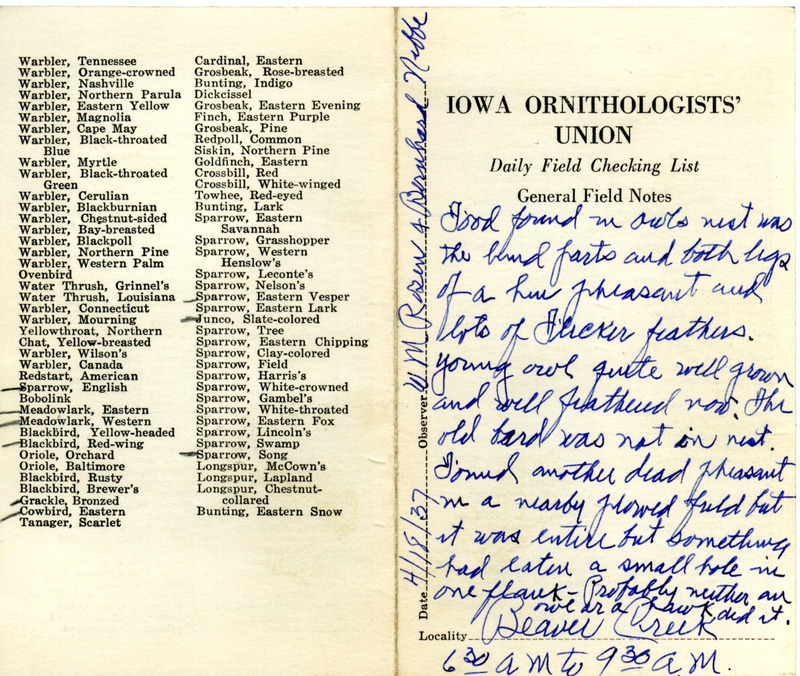 Warbler, Tennessee
Warbler, Orange-crowned
Warbler, Nashville
Warbler, Northern Parula
Warbler, Eastern Yellow
Warbler, Magnolia
Warbler, Cape May
Warbler, Black-throated
Blue
Warbler, Myrtle
Warbler, Black-throated
Green
Warbler, Cerulian
Warbler, Blackburnian
Warbler, Chestnut-sided
Warbler, Bay-breasted
Warbler, Blackpoll
Warbler, Northern Pine
Warbler, Western Palm
Ovenbird
Water Thrush, Grinnel's
Water Thrush, Louisiana
Warbler, Connecticut
Warbler, Mourning
Yellowthroat, Northern
Chat, Yellow-breasted
Warbler, Wilson's
Warbler, Canada
Redstart, American
Sparrow, English
Bobolink
Meadowlark, Eastern
Meadowlark, Western
Blackbird, Yellow-headed
Blackbird, Red-wing
Oriole, Orchard
Oriole, Baltimore
Blackbird, Rusty
Blackbird, Brewer's
Grackle, Bronzed
Cowbird, Eastern
Tanager, Scarlet
Cardinal, Eastern
Grosbeak, Rose-breasted
Bunting, Indigo
Dickcissel
Grosbeak, Eastern Evening
Finch, Eastern Purple
Grosbeak, Pine
Redpoll, Common
Siskin, Northern Pine
Goldfinch, Eastern
Crossbill, Red
Crossbill, White-winged
Towhee, Red-eyed
Bunting, Lark
Sparrow, Eastern
Savannah
Sparrow, Grasshopper
Sparrow, Western
Henslow's
Sparrow, Leconte's
Sparrow, Nelson's
Sparrow, Eastern Vesper
Sparrow, Eastern Lark
Junco, Slate-colored
Sparrow, Tree
Sparrow, Eastern Chipping
Sparrow, Clay-colored
Sparrow, Field
Sparrow, Harris's
Sparrow, White-crowned
Sparrow, Gambel's
Sparrow, White-throated
Sparrow, Eastern Fox
Sparrow, Lincoln's
Sparrow, Swamp
Sparrow, Song
Longspur, McCown's
Longspur, Lapland
Longspur, Chestnut-
collared
Bunting, Eastern Snow
Date 4/18/37 Observer W M Rosen & Bernhard Nebbe
IOWA ORNITHOLOGISTS'
UNION
Daily Field Checking List
General Field Notes
Food found in owls nest was
the hind parts and both legs
of a hen pheasant and
lots of Flicker feathers.
Young owl quite well grown
and well feathered now. The
old bard was not in nest.
Found another dead pheasant
in a nearby plowed field but
it was entire but something
had eaten a small hole in
one flank - Probably neither an
owl or a hawk did it.
Locality Beaver Creek
6 30 A M to 9 30 A.M.